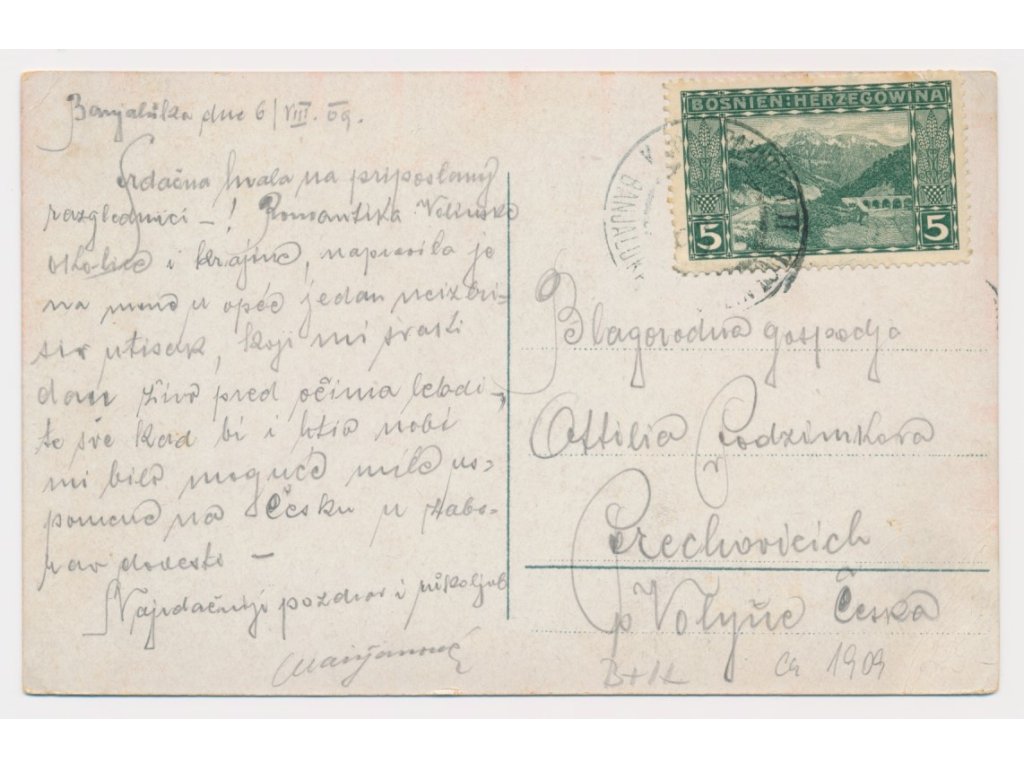 Banjaluka dne 6/VIII. 09.
Srdačna hvala na priposlanoj
razglednici —! Romantika Volinske
okolice i krajine, napravila je
na mene u opće jedan neizbri-
siv utisak, koji mi svaki
dan živo pred očima lebdi,
te sve kad bi i htio nebi
mi bilo moguće mile us-
pomene na Česku u zabo-
rav dovesti —
Najsrdačniji pozdrav i rukoljub
Marijanović
BOSNIEN-HERZEGOWINA
5 5
BANJALUKA
Blagorodna gospodja
Ottilia Podzimkova
Přechovicich
p Volyňe Česka
B+H ca 1909